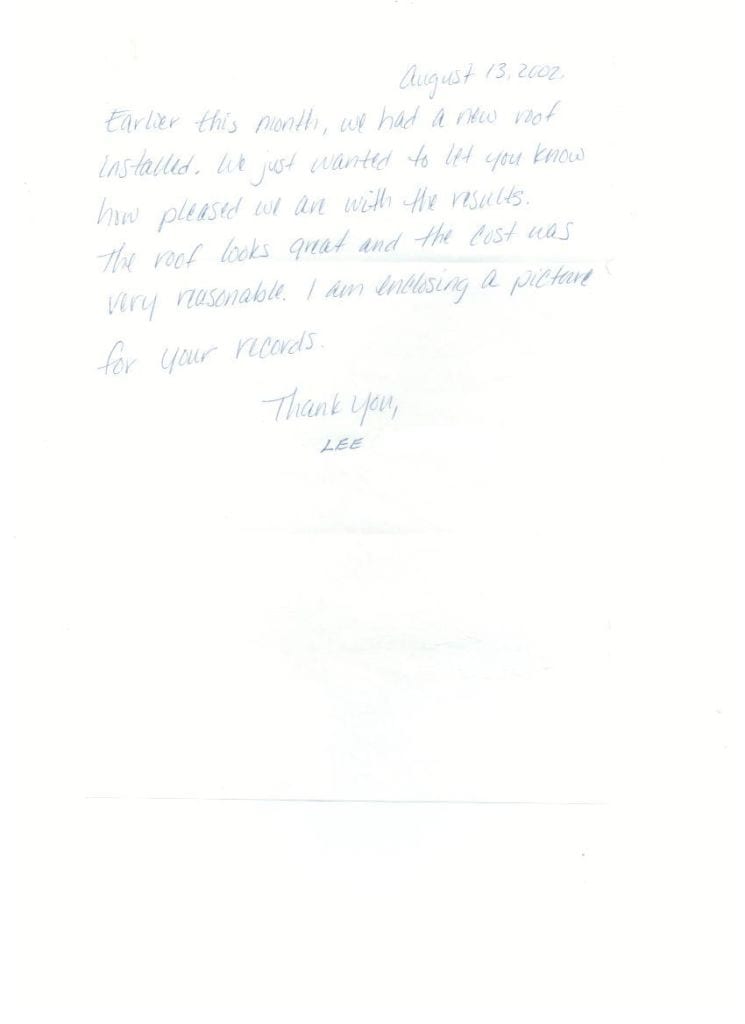 August 13, 2002.
Earlier this month, we had a new roof
installed. We just wanted to let you know
how pleased we are with the results.
The roof looks great and the cost was
very reasonable. I am enclosing a picture
for your records.
Thank you,
LEE